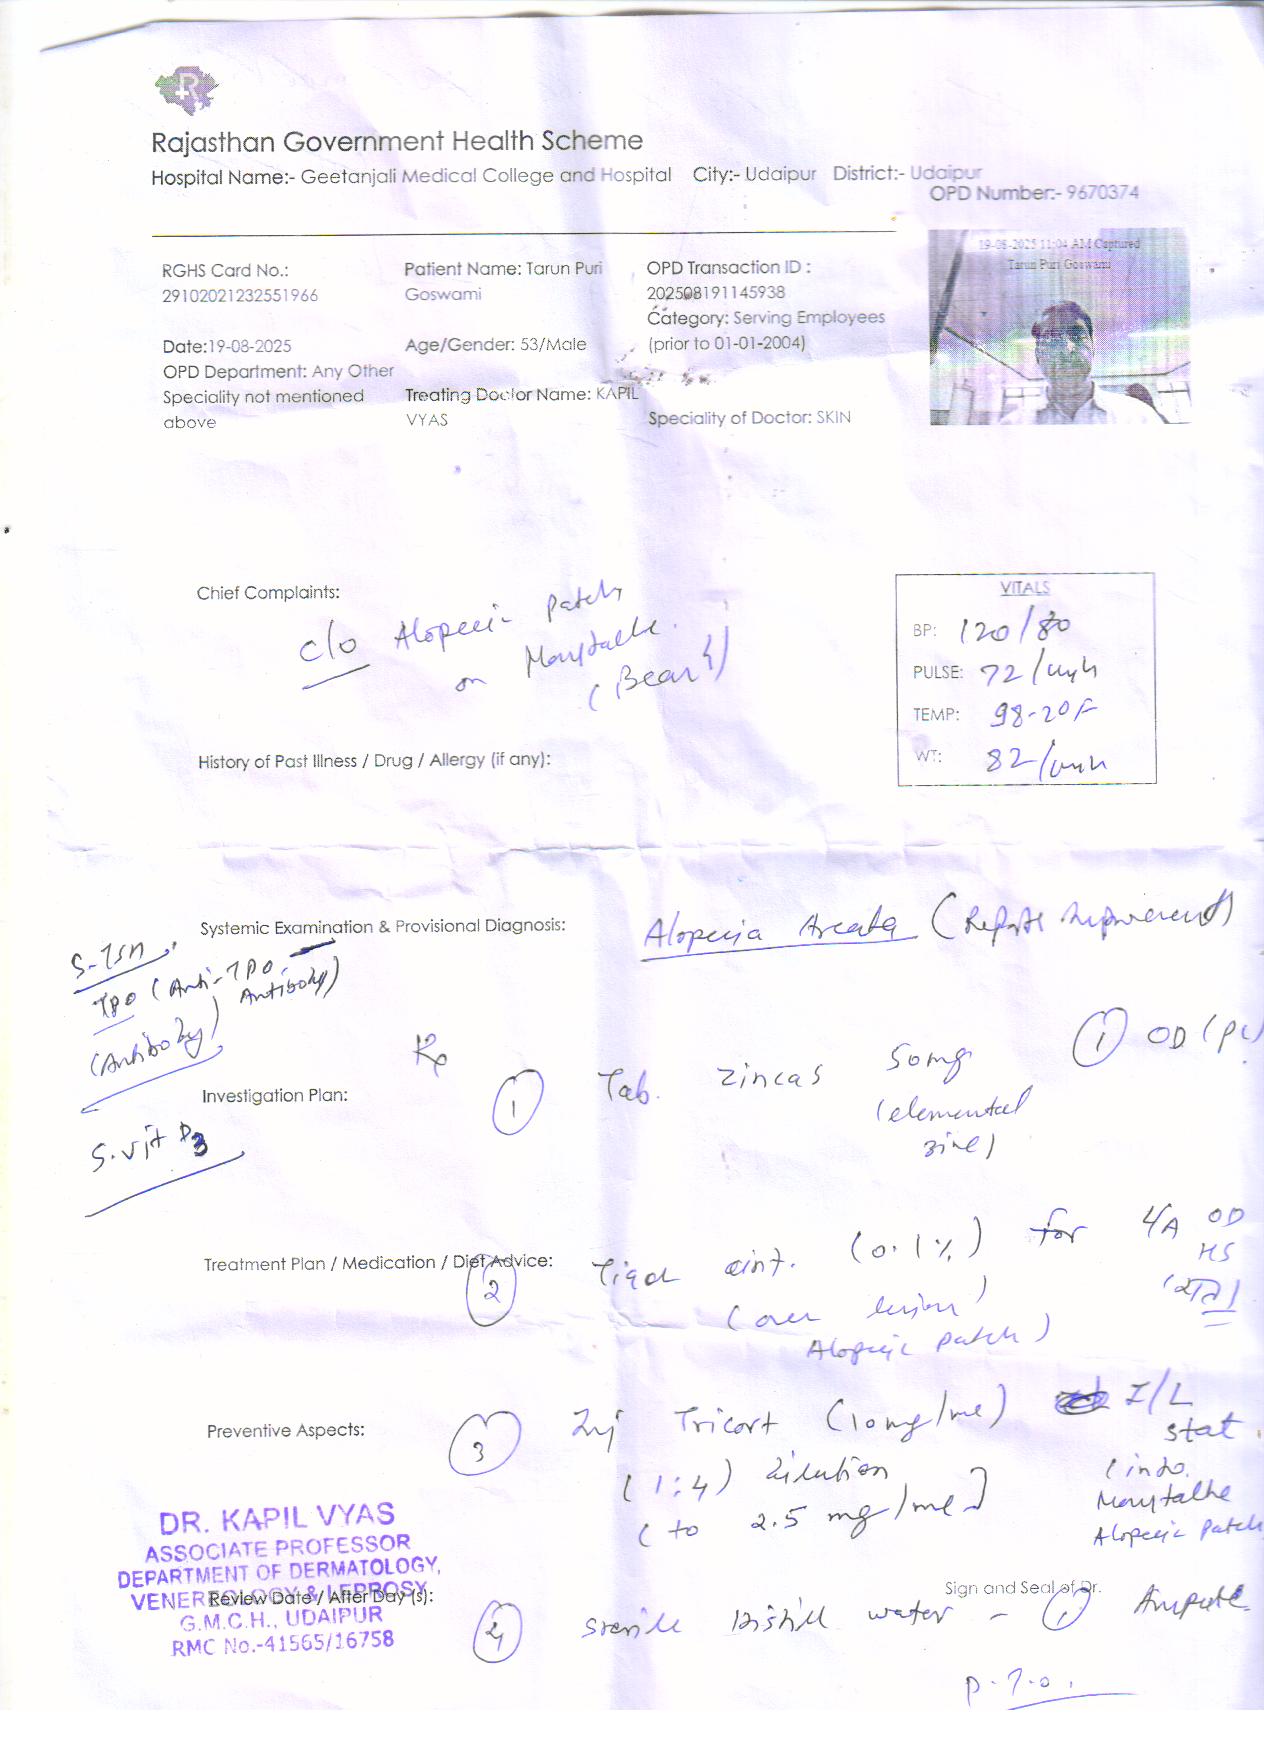 Rajasthan Government Health Scheme
Hospital Name:- Geetanjali Medical College and Hospital City:- Udaipur District:- Udaipur
OPD Number:- 9670374
19-08-2025 11:04 AM Captured
Tarun Puri Goswami
RGHS Card No.:
29102021232551966
Patient Name: Tarun Puri
Goswami
OPD Transaction ID :
202508191145938
Category: Serving Employees
(prior to 01-01-2004)
Date:19-08-2025
Age/Gender: 53/Male
OPD Department: Any Other
Speciality not mentioned
above
Treating Doctor Name: KAPIL
VYAS
Speciality of Doctor: SKIN
Chief Complaints:
c/o Alopecic patch
on
(Beard)
VITALS
BP: 120/80
PULSE: 72/
TEMP: 98.20F
WT: 82/
History of Past Illness / Drug / Allergy (if any):
Systemic Examination & Provisional Diagnosis:
Alopecia Areata (Reports improvement)
TPO (Anti-TPO
Antibody)
(Antibody)
Rx
Investigation Plan:
S.Vit D3
1 Tab. Zincas 50mg 1 OD (pc)
(elemental
zinc)
Treatment Plan / Medication / Diet Advice:
2 oint. (0.1%) for L/A OD
HS
(over lesion)
Alopecic patch)
Preventive Aspects:
3 Inj Tricort (10mg/ml) I/L
stat
(1:4) dilution
(to 2.5 mg/ml]
(into
Alopecic patch
DR. KAPIL VYAS
ASSOCIATE PROFESSOR
DEPARTMENT OF DERMATOLOGY,
VENEREOLOGY & LEPROSY
G.M.C.H., UDAIPUR
RMC No.-41565/16758
Review Date / After Day (s):
Sign and Seal of Dr.
4 Sterile Distill water - 1 Ampule
P.T.O.